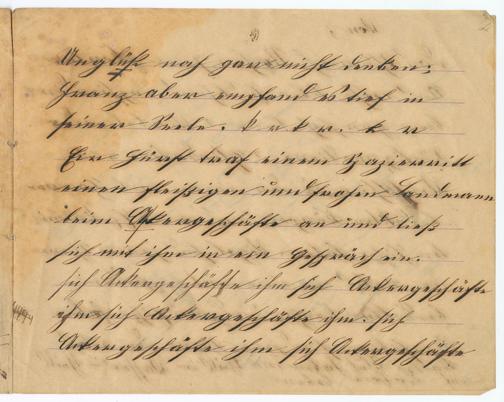 Unglück noch gar nicht denken;
Franz aber empfand es tief in
seiner Seele. k r k r. k r
Ein Fürst traf einem Spazierritt
einen fleißigen und frohen Landmann
beim Ackergeschäfte an und ließ
sich mit ihm in ein Gespräch ein.
sich Ackergeschäfte ihm sich Ackergeschäfte
ihm sich Ackergeschäfte ihm. sich
Ackergeschäfte ihm sich Ackergeschäfte